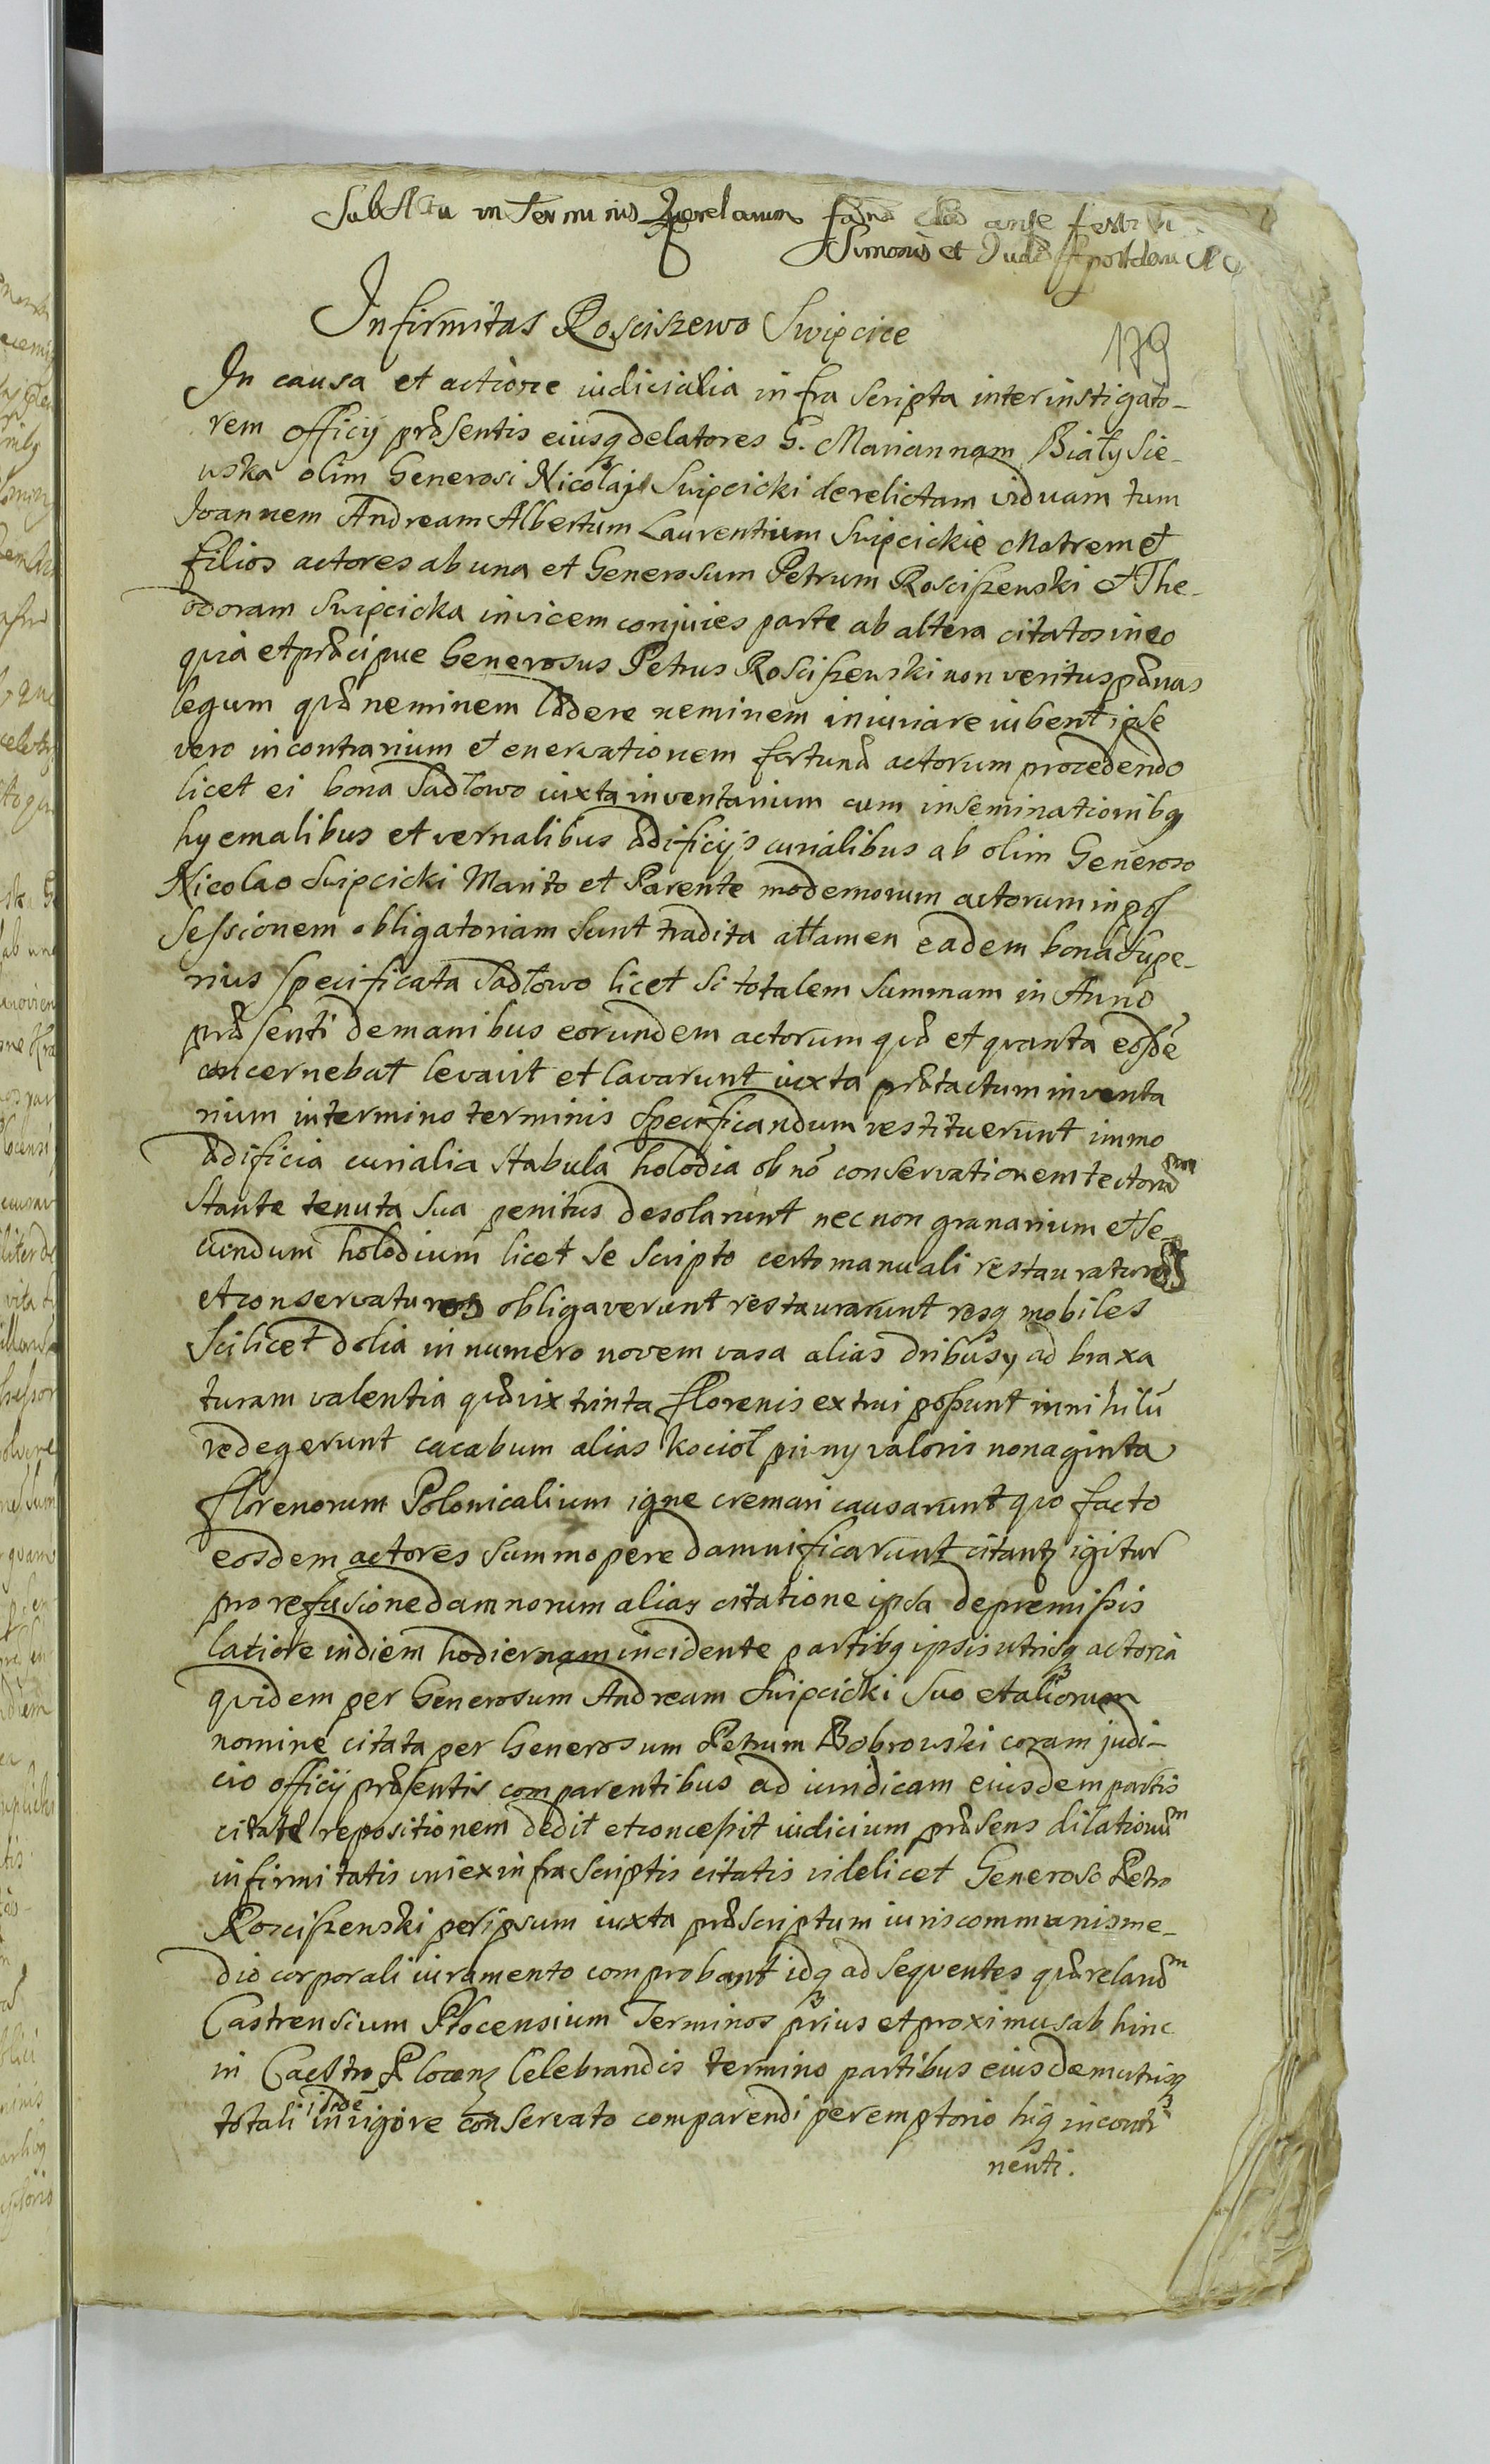 Sub Actu in Terminis Querelarum ante festu
Simonis et Iudæ Apostolorum
Infirmitas Rosciszewo Swipcice
179
In causa et actione iudicialia infra scripta inter instigato-
rem officij præsentis eiusq delatores G. Mariannam Białysie-
wska olim Generosi Nicolaji Swipcicki derelictam viduam tum
Joannem Andream Albertum Laurentium Swipcickie Matrem et
filios actores ab una et Generosum Petrum Rosciszewski et The-
odoram Swipcicka invicem conjuies parte ab altera citatos in eo
quia et præcipue Generosus Petrus Rosciszewski non veritus pænas
legum quæ neminem lædere neminem iniuriare iubent ipse
vero in contrarium et enervationem fortunæ actorum procedendo
licet ei bona Sadłowo iuxta inventarium cum inseminationibq
hyemalibus et vernalibus ædificijs curialibus ab olim Generoso
Nicolao Swipcicki Marito et Parente modernorum actorum in pos
sessionem obligatoriam sunt tradita attamen eadem bona supe-
rius specificata Sadłowo licet si totalem summam in Anno
præsenti de manibus eorundem actorum quæ et quanta eosdē
concernebat levavit et lavarunt iuxta prætactum inventa
rium in termino terminis specificandum restituerunt immo
ædificia curialia stabula holodia ob nō conservationem tectorū
stante tenuta sua penitus desolarunt nec non granarium et se-
cundum holodium licet se scripto certo manuali restauraturos
et conservaturos obligaverunt restaurarunt resq mobiles
scilicet dolia in numero novem vasa alias dribusy ad braxa
turam valentia quæ vix trinta florenis extrui possunt in nihilū
redegerunt cacabum alias kocioł piwny valoris nonaginta
florenorum Polonicalium igne cremari causarunt quo facto
eosdem actores summopere damnificarunt citantʒ igitur
pro refusione damnorum alias citatione ipsa de premissis
latiore in diem hodiernam incidente partibq ipsis utrisq actoria
quidem per Generosum Andream Swipcicki suo et aliorum
nomine citata per Generosum Petrum Bobrowski coram judi-
cio officij præsentis comparentibus ad iuridicam eiusdem partis
citatæ repositionem dedit et concessit iudicium præsens dilationem
infirmitatis uni ex infra scriptis citatis videlicet Generoso Petro
Rosciszewski per ipsum iuxta præscriptum iuris communis me-
dio corporali iuramento comprobant idq ad sequentes quærelarum
Castrensium Plocensium Terminos prius et proximus ab hinc
in Castro Plocenʒ celebrandis termino partibus eiusdem utrisq
totali ibidē in vigore conservato comparendi peremptorio hiq in conti
nenti.